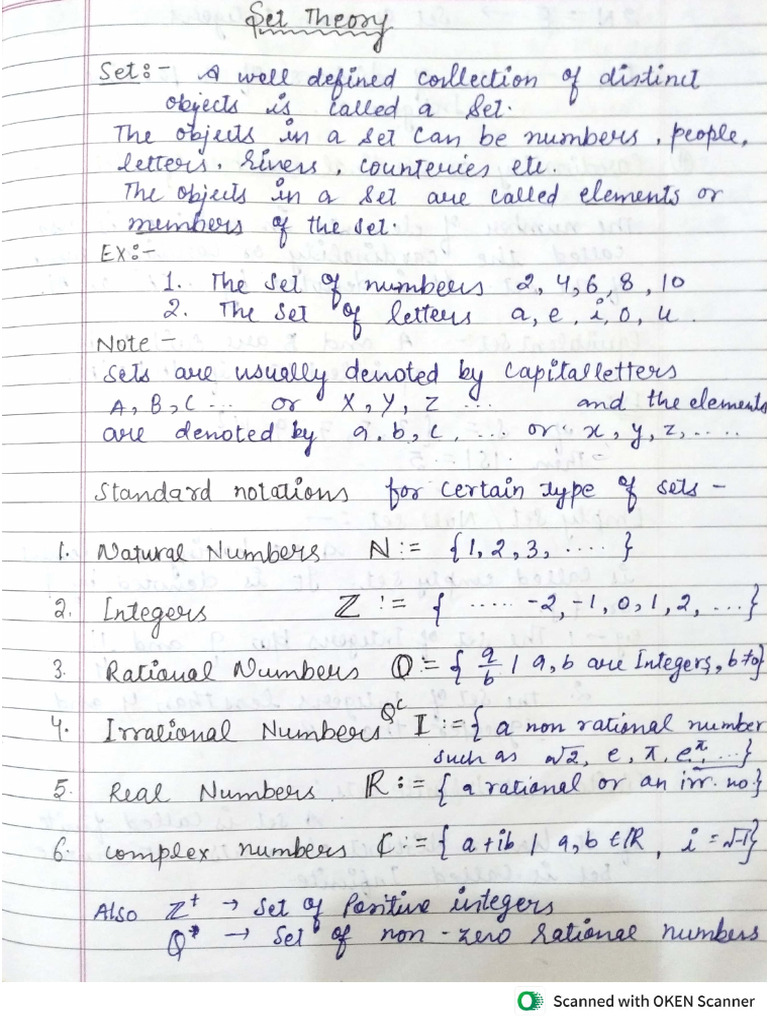 Set Theory
Set:- A well defined collection of distinct
objects is called a Set.
The objects in a set can be numbers, people,
letters, Rivers, counteries etc.
The objects in a set are called elements or
members of the set.
Ex:-
1. The set of numbers 2, 4, 6, 8, 10
2. The set of letters a, e, i, o, u.
Note -
Sets are usually denoted by capital letters
A, B, C ... or X, Y, Z ... and the elements
are denoted by a, b, c, ... or x, y, z, ....
Standard notations for certain type of sets -
1. Natural Numbers N := {1, 2, 3, ..... }
2. Integers Z := { ..... -2, -1, 0, 1, 2, ...}
3. Rational Numbers Q := { a/b | a, b are Integers, b≠0}
4. Irrational Numbers Qᶜ I := { a non rational number
such as √2, e, π, e^π, ...}
5. Real Numbers R := { a rational or an irr. no.}
6. complex numbers C := { a+ib | a, b ∈ R, i = √-1}
Also Z⁺ → Set of Positive integers
Q* → Set of non-zero rational numbers
Scanned with OKEN Scanner